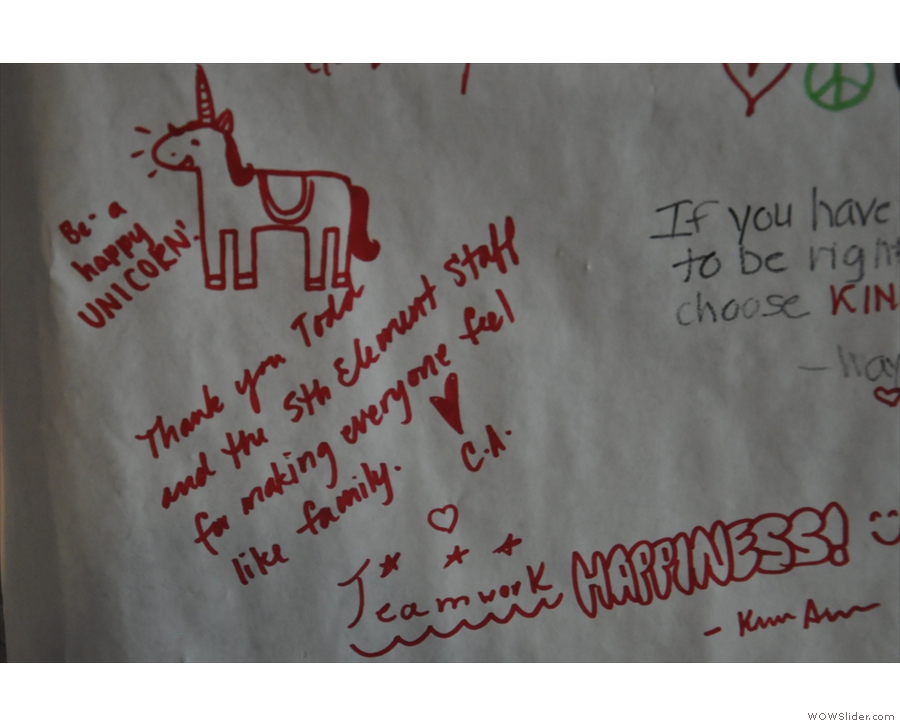 Be- a
happy
UNICORN!
Thank you Todd
and the 5th Element Staff
for making everyone feel
like family.
C.A.
If you have
to be right
choose KIN
Teamwork HAPPINESS!
WOWSlider.com